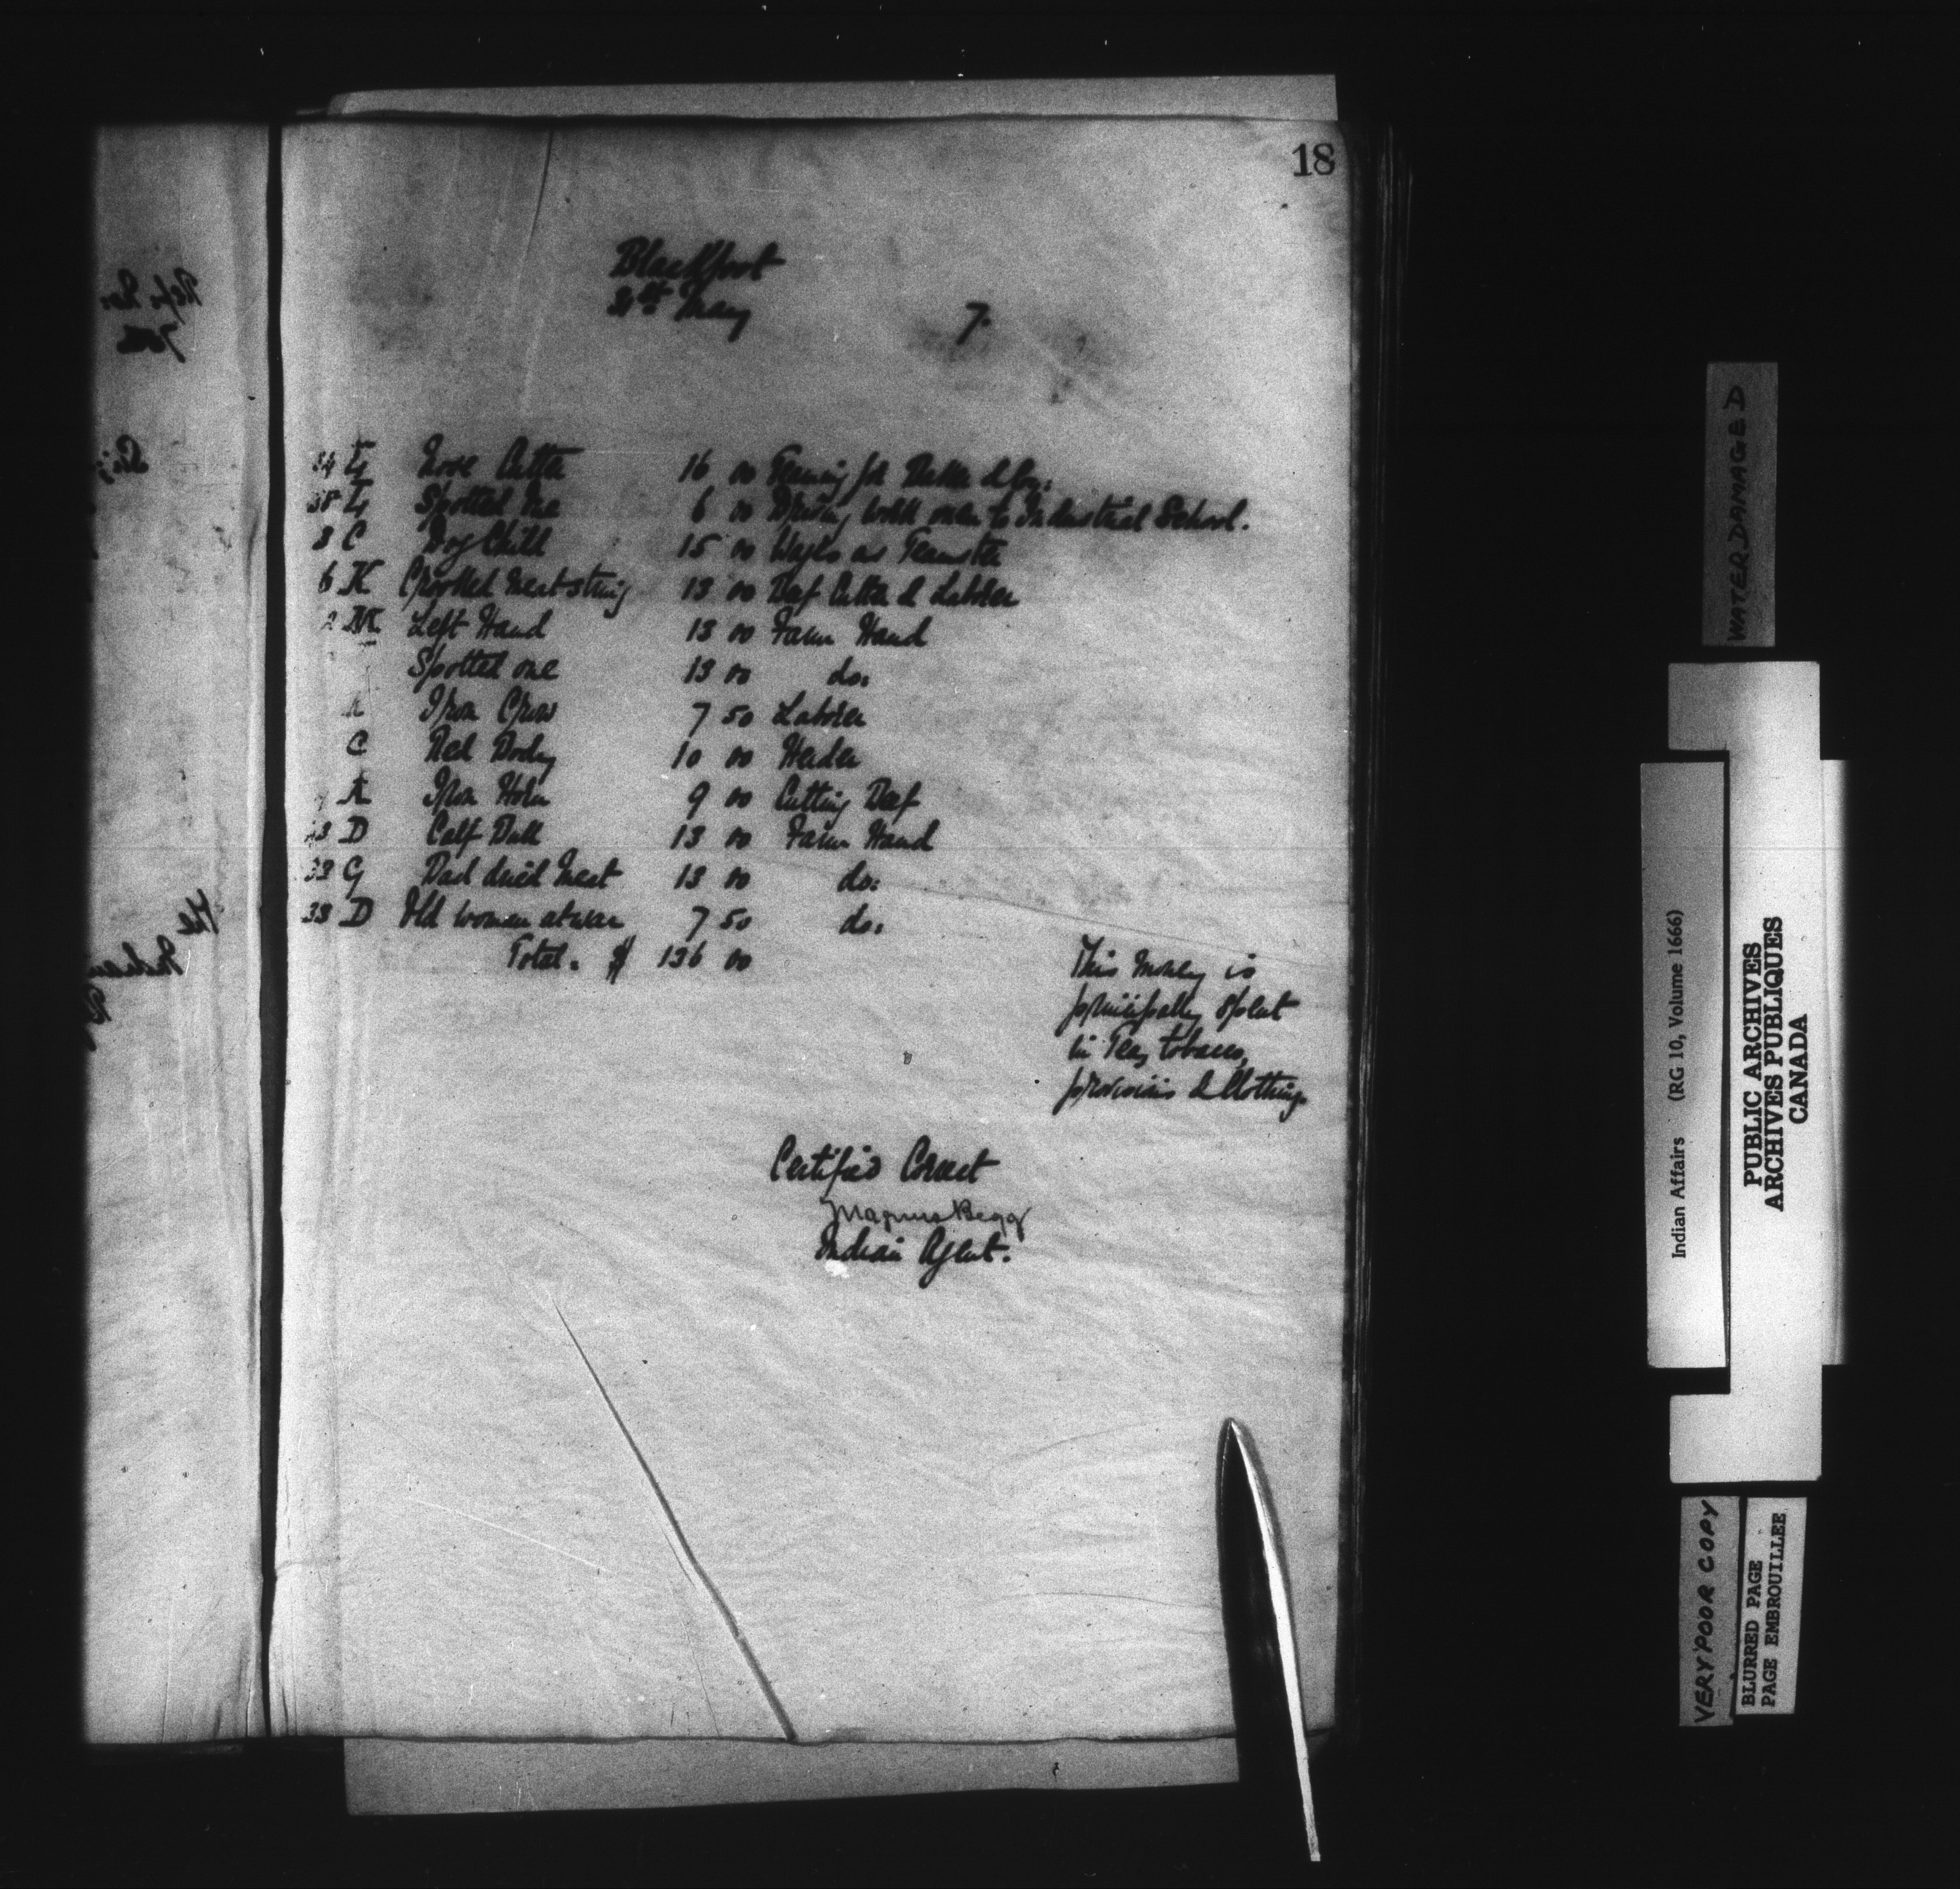 18
Blackfoot
31st May 7.
34 G Nose Cutter 16 00 Teaming for Baker & Co.
38 G Spotted One 6 00 Driving with men to Industrial School.
3 C Dog Child 15 00 Wages as Teamster
6 K Crooked Meat string 13 00 Beef Cutter & Laborer
2 Left Hand 13 00 Farm Hand
Spotted one 13 00 do:
Iron Crow 7 50 Laborer
C Red Body 10 00 Herder
A Iron Horn 9 00 Cutting Beef
D Calf Bull 13 00 Farm Hand
33 G Bad dried Meat 13 00 do:
33 D Old woman at war 7 50 do:
Total. $ 136 00
This money is
principally spent
in Tea, tobacco,
provisions & Clothing.
Certified Correct
Magnus Begg
Indian Agent.
WATER DAMAGED
Indian Affairs (RG 10, Volume 1666)
PUBLIC ARCHIVES
ARCHIVES PUBLIQUES
CANADA
VERY POOR COPY
BLURRED PAGE
PAGE EMBROUILLEE